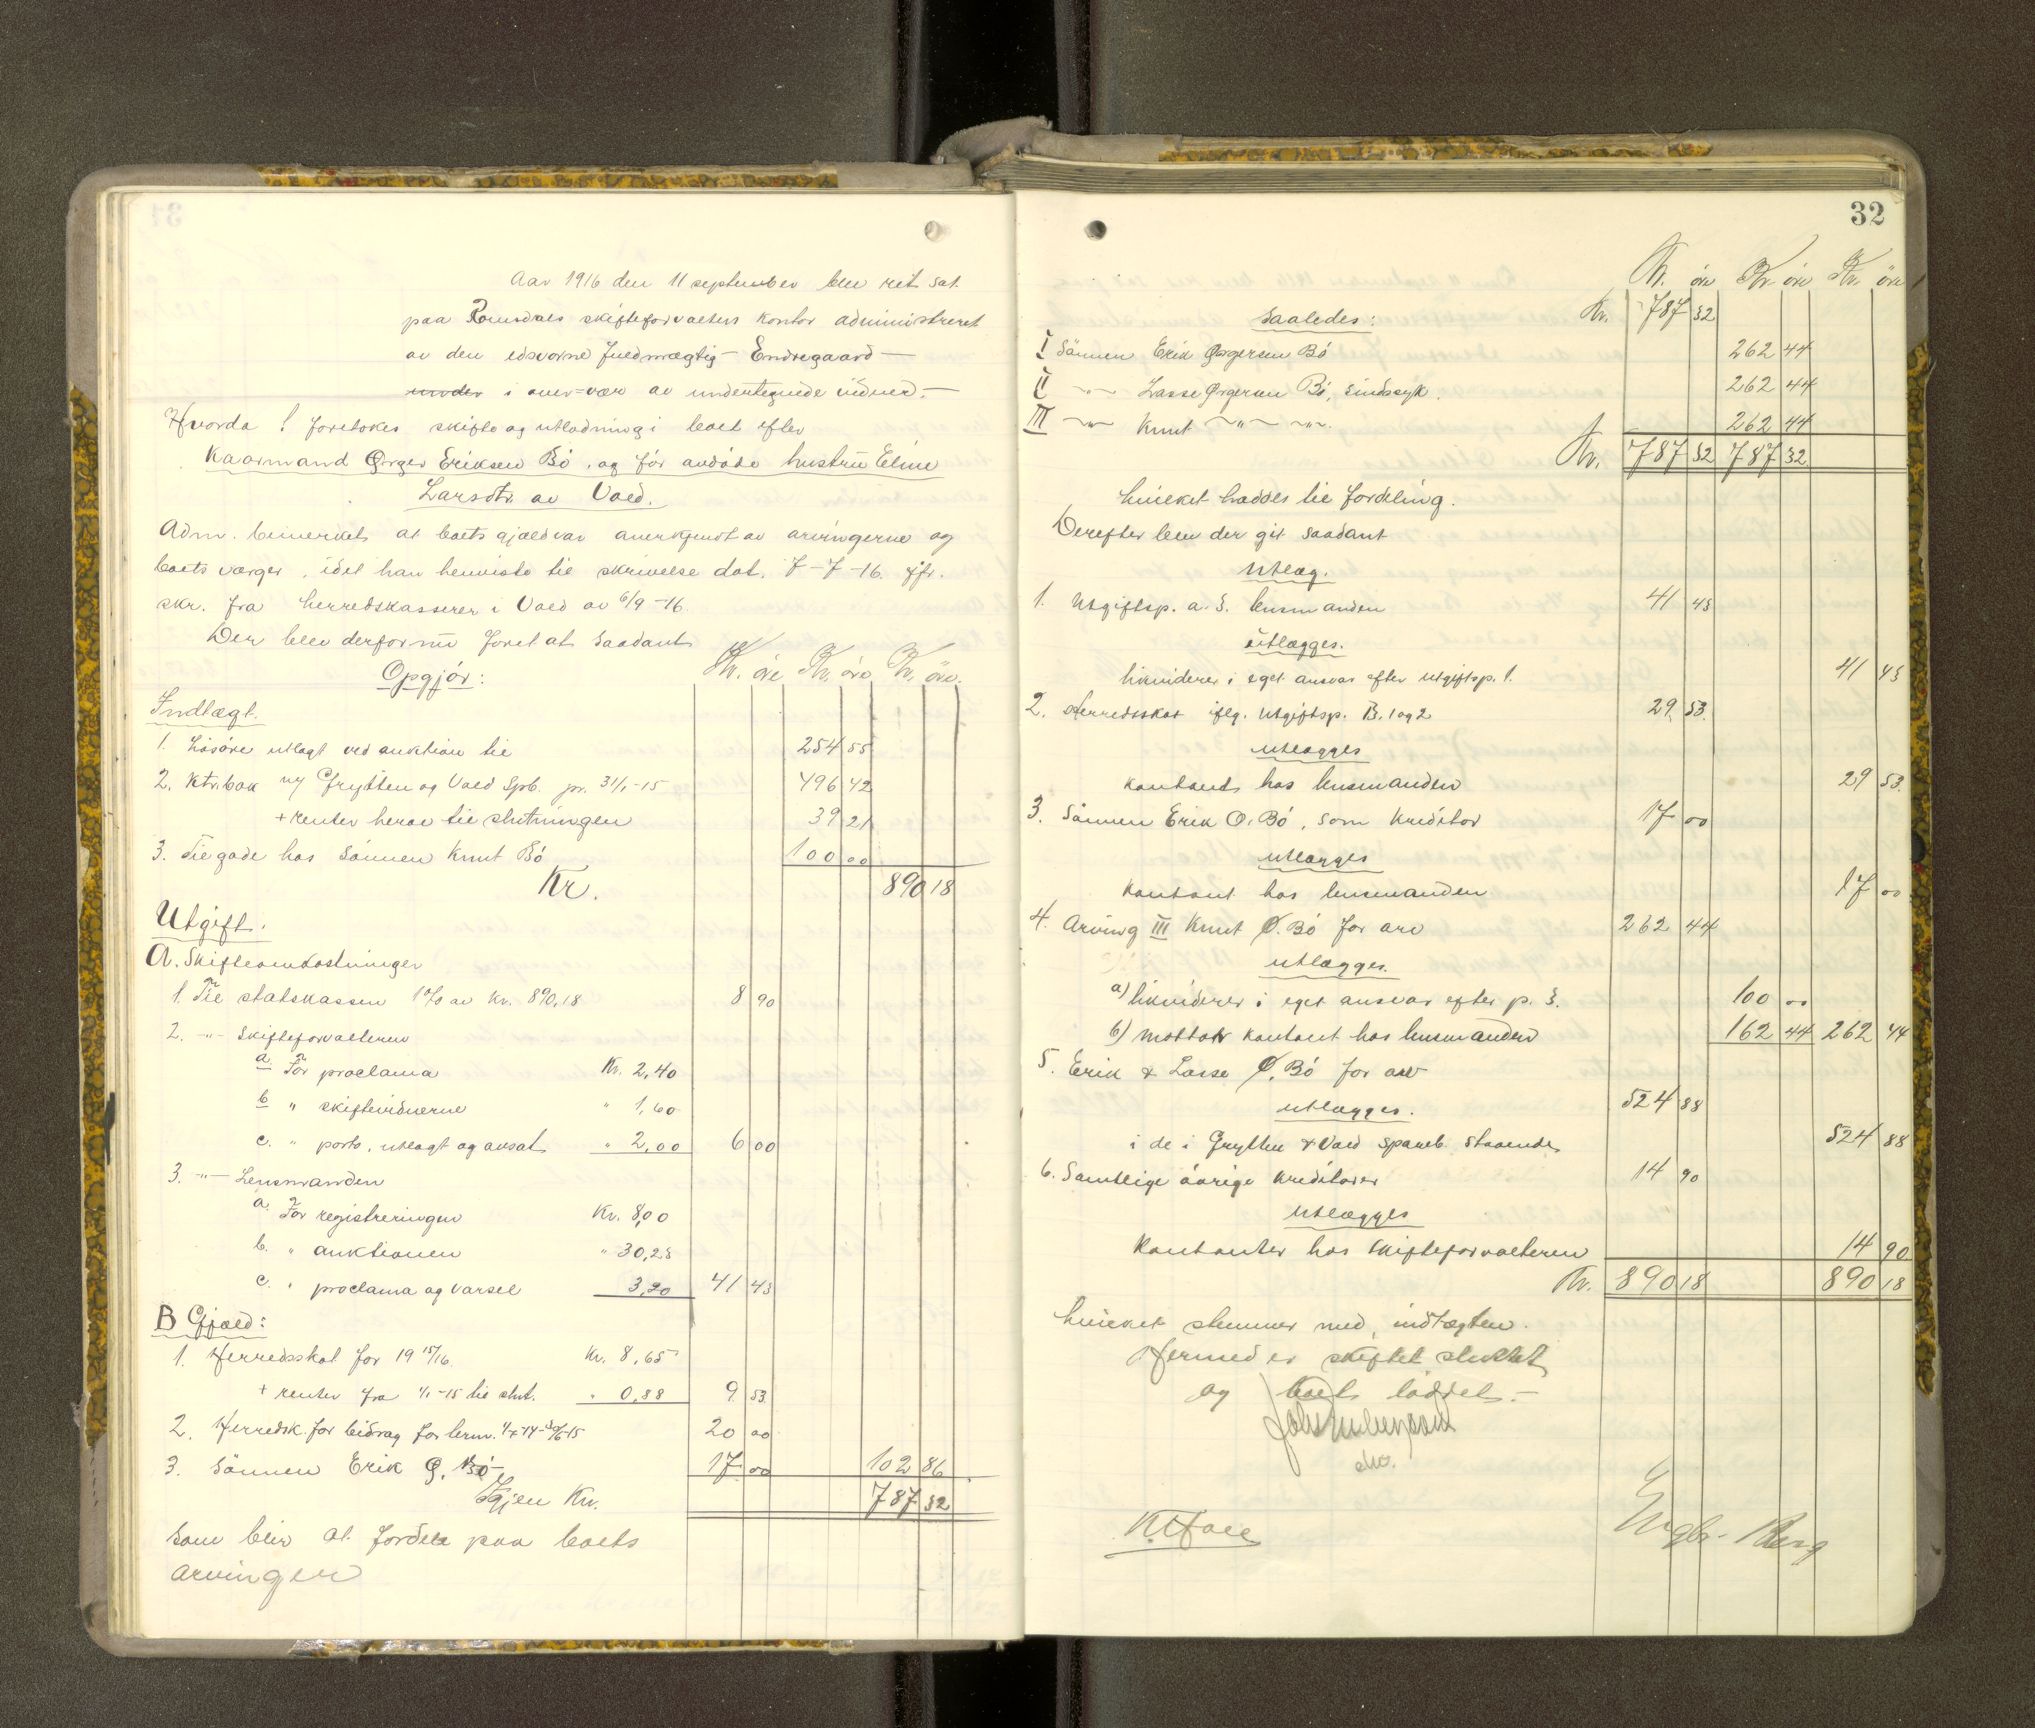 Aar 1916 den 11 september blev ret sat
paa Romsdals skifteforvalters kontor administreret
av den edsvorne fuldmægtig - Endregaard -
under i overvær av undertegnede vidner. -
Hvorda! foretokes skifte og utlodning i boet efter
Kaarmand Ørger Eriksen Bö, og för avdöde hustru Eline
Larsdtr. av Vold.
Adm. bemerket at boets gjæld var anerkjendt av arvingerne og
boets verger, idet han henviste til skrivelse dat. 7-7-16 jfr.
skr. fra herredskasserer i Vold av 6/9-16.
Der blev derfor nu foretat saadant
Opgjör:
Kr. öre Kr. öre Kr. öre.
Indtægt.
1. Lösöre utlagt ved auktion til 254 55
2. Ktr.bok m/ Grytten og Vold Spb. pr. 31/1-15 496 42
+ renter herav til slutningen 39 21
3. Tilgode hos Sönnen Knut Bö 100 00
Kr. 890 18
Utgift.
A. Skifteomkostninger
1. Til statskassen 1% av Kr. 890,18 8 90
2. -"- Skifteforvalteren
a. For proclama Kr. 2,40
b " skiftevidnerne " 1,60
c. " porto, utlagt og avsat " 2,00 6 00
3. -"- Lensmanden
a. For registreringen Kr. 8,00
b. " auktionen " 30,25
c. " proclama og varsel 3,20 41 45
B Gjæld:
1. Herredsskat for 1915/16. Kr. 8,65
+ renter fra 1/1-15 til slut. " 0,88 9 53
2. Herredsk. for bidrag for term. 1/7-14-30/6-15 20 00
3. Sönnen Erik Ø. Bö 17 00 102 86
Igjen Kr. 787 32
Som blir at fordele paa boets
arvinger
32
Kr. öre Kr. öre Kr. öre
Saaledes: Kr. 787 32
I Sönnen Erik Ørgersen Bö 262 44
II -"- Lasse Ørgersen Bö, sindssyk. 262 44
III -"- Knut -"- -"-. 262 44
Kr. 787 32 787 32
hvilket haddes til fordeling.
Derefter blev der git saadant
Utlæg.
1. Utgiftsp. a. 3. lensmanden 41 45
utlægges.
likviderer i eget ansvar efter utgiftsp. 1. 41 45
2. Herredsskat iflg. utgiftsp. B. 1 og 2 29 53
utlægges
kontant hos lensmanden 29 53
3. Sönnen Erik O. Bö, som kreditor 17 00
utlægges
kontant hos lensmanden 17 00
4. Arving III Knut Ø. Bö for arv 262 44
utlægges.
a) likviderer i eget ansvar efter p. 3. 100 00
b) mottar kontant hos lensmanden 162 44 262 44
5. Erik & Lasse Ø. Bö for arv
utlægges. 524 88
i de i Grytten & Vold Spareb. staaende 524 88
6. Samtlige övrige kreditorer 14 90
utlægges
Kontanter hos skifteforvalteren 14 90
Kr. 890 18 890 18
hvilket stemmer med indtægten.
Hermed er skiftet sluttet
og boets loddet. -